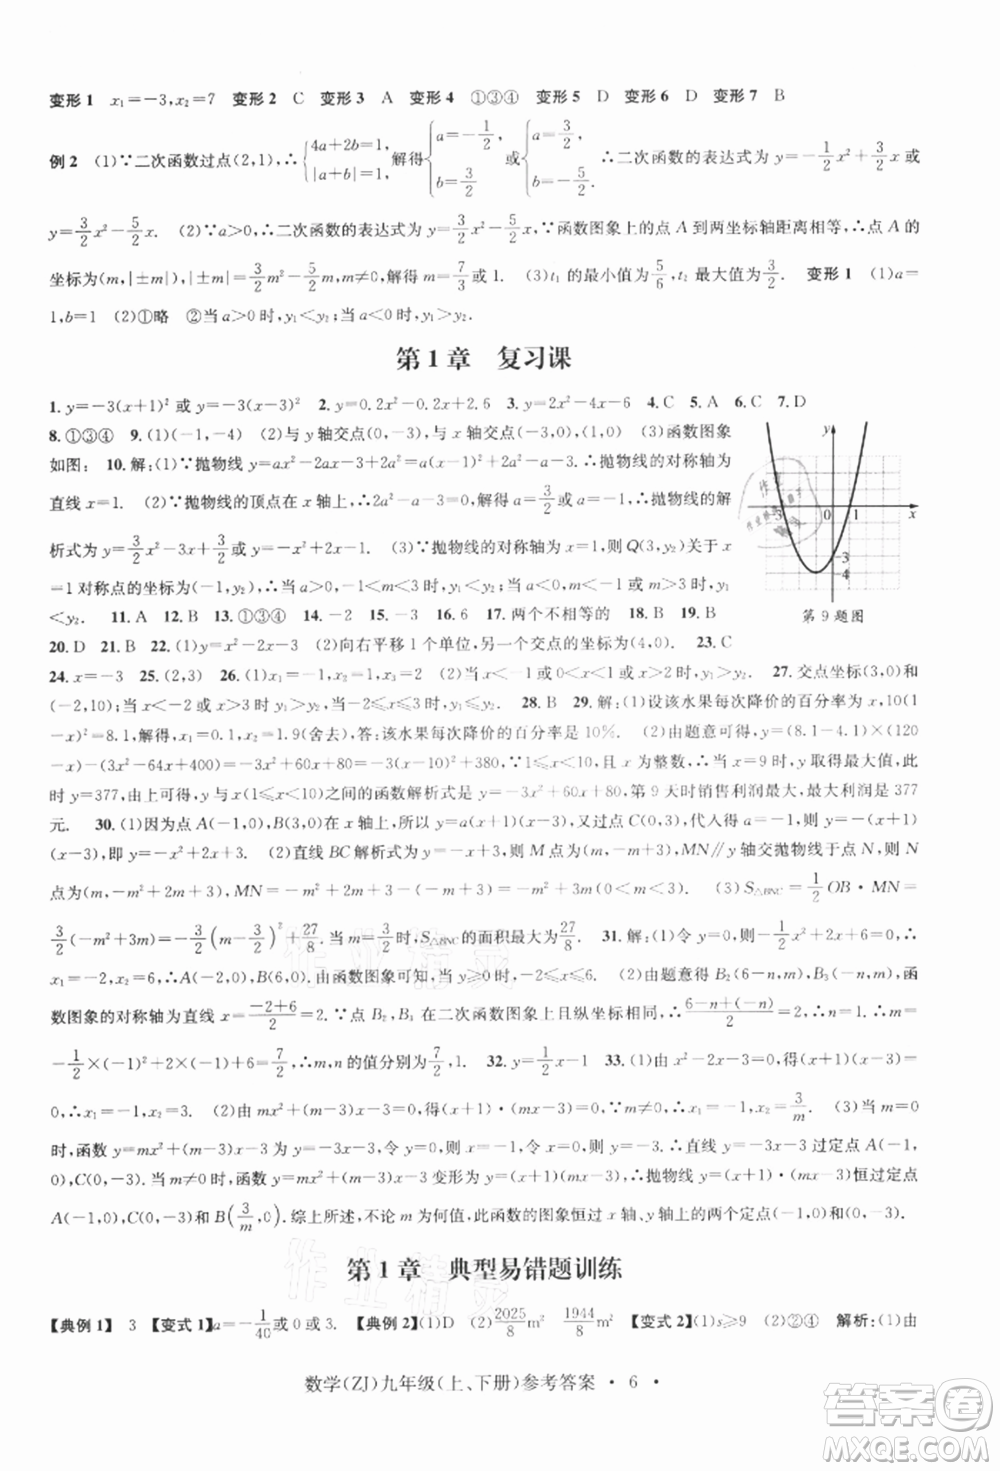 变形1 x₁=-3,x₂=7 变形2 C 变形3 A 变形4 ①③④ 变形5 D 变形6 D 变形7 B
例2 (1)∵二次函数过点(2,1),∴{4a+2b=1, |a+b|=1,解得{a=-1/2 b=3/2 或{a=3/2, b=-5/2. ∴二次函数的表达式为y=-1/2x²+3/2x或
y=3/2x²-5/2x. (2)∵a>0,∴二次函数的表达式为y=3/2x²-5/2x.∵函数图象上的一点A到两坐标轴距离相等,∴点A的
坐标为(m,|±m|)(其中m≠0),解得m=7/3或1. (3)t₁的最小值为5/6,t₂最大值为3/2. 变形1 (1)a=
1,b=1 (2)①略 ②当a>0时,y₁<y₂;当a<0时,y₁>y₂.
第1章 复习课
1.y=-3(x+1)²或y=-3(x-3)² 2.y=0.2x²-0.2x+2.6 3.y=2x²-4x-6 4.C 5.A 6.C 7.D
8.①③④ 9.(1)(-1,-4) (2)与y轴交点(0,-3),与x轴交点(-3,0),(1,0) (3)函数图象
如图: 10.解:(1)∵抛物线y=ax²-2ax-3+2a²=a(x-1)²+2a²-a-3,∴抛物线的对称轴为
直线x=1. (2)∵抛物线的顶点在x轴上,∴2a²-a-3=0,解得a=3/2或a=-1,∴抛物线的解
析式为y=3/2x²-3x+3/2或y=-x²+2x-1. (3)∵抛物线的对称轴为x=1,则Q(3,y₂)关于x
=1对称点的坐标为(-1,y₂),∴当a>0,-1<m<3时,y₁<y₂;当a<0,m<-1或m>3时,y₁
<y₂. 11.A 12.B 13.①③④ 14.-2 15.-3 16.6 17.两个不相等的 18.B 19.B
20.D 21.B 22.(1)y=x²-2x-3 (2)向右平移1个单位,另一个交点的坐标为(4,0). 23.C
24.x=-3 25.(2,3) 26.(1)x₁=-1,x₂=3 (2)x<-1或x>3 (3)x<1或0<x<3 27.交点坐标(3,0)和
(-2,10);当x<-2或x>3时,y₁>y₂ 28.B 29.解:(1)设该水果每次降价的百分率为x,10(1
-x)²=8.1,解得x₁=0.1,x₂=1.9(舍去),答:该水果每次降价的百分率是10%. (2)由题意可得y=(8.1-4.1)×(120
-x)-(3x²-64x+400)=-3x²+60x+80=-3(x-10)²+380,∵1≤x<10,∴当x=9时,y取得最大值,此
时y=377,由上可得,y与x(1≤x<10)之间的函数解析式是y=-3x²+60x+80,第9天时销售利润最大,最大利润是377
元. 30.(1)因为点A(-1,0),点B(3,0)在x轴上,所以设y=a(x+1)(x-3),又过点C(0,3),代入得a=-1.y=-(x+
1)(x-3),即y=-x²+2x+3. (2)直线BC解析式为y=-x+3,则M点为(m,-m+3),MN∥y轴交抛物线于点N,则N
点为(m,-m²+2m+3),MN=-m²+2m+3-(-m+3)=-m²+3m(0<m<3). (3)S△BNC=1/2OB·MN=
3/2(-m²+3m)(0<m<3)=-3/2(m-3/2)²+27/8,当m=3/2时,S△BNC的面积最大为27/8. 31.解:(1)令y=0,则-1/2x²+2x+6=0,∴
x₁=-2,x₂=6,∴A(-2,0),B(6,0).由函数图象可得,当y≥0时,-2≤x≤6. (2)由题意得B₂(6-n,m),B₃(-n,m),函
数图象的对称轴为直线x=(-2+6)/2=2.∵点B₂,B₃在二次函数图象上且纵坐标相同,∴(6-n+(-n))/2=2,∴n=1,∴m=
-1/2×(-1)²+2×(-1)+6=7/2,∴m,n的值分别为7/2,1. 32.y=1/2x-1 33.(1)由x²-2x-3=0,得(x+1)(x-3)=
0,∴x₁=-1,x₂=3. (2)由mx²+(m-3)x-3=0得(x+1)·(mx-3)=0.∵m≠0,∴x₁=-1,x₂=3/m. (3)当m=0
时,函数y=mx²+(m-3)x-3为y=-3x-3,令y=0,得x=-1,令x=0,则y=-3,∴直线y=-3x-3过定点A(-1,
0),C(0,-3).当m≠0时,函数y=mx²+(m-3)x-3变形为y=(x+1)·(mx-3),∴抛物线y=(x+1)·(mx-3)恒过定点
A(-1,0),C(0,-3)和B(3/m,0).综上所述,不论m为何值,此函数的图象恒过x轴、y轴上的两个定点(-1,0)和(0,-3).
第9题图
第1章 典型易错题训练
【典例1】 3 【变式1】a=-1/40或0或3. 【典例2】(1)D (2)2025/8m² 1944/8m² 【变式2】(1)s≥9 (2)②④ 解析:(1)由
数学(ZJ)九年级(上、下册)参考答案 · 6 ·
答案卷
MXQE.COM